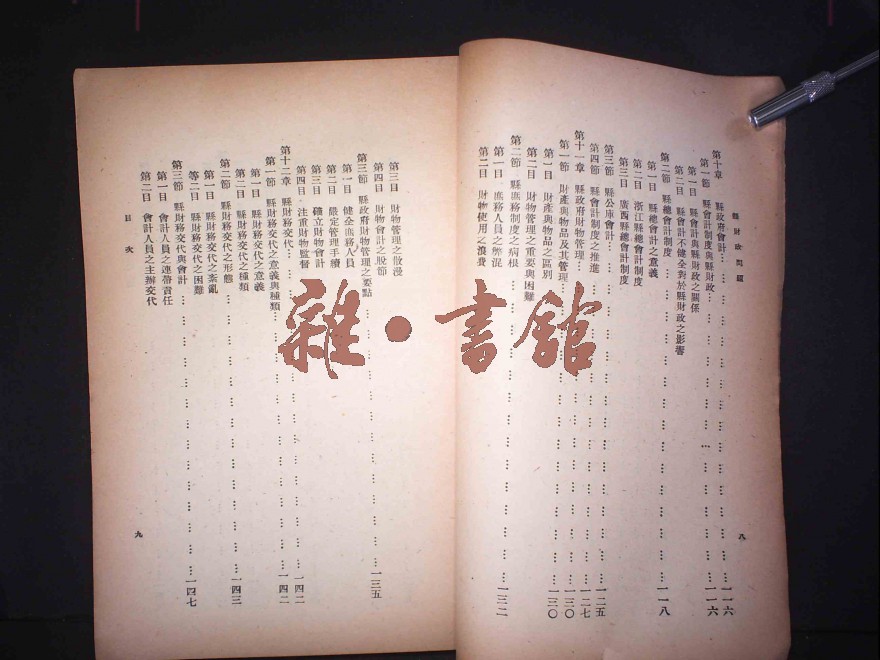 縣財政問題
第十章 縣政府會計…一一六
第一節 縣會計制度與縣財政…一一六
第一目 縣會計與縣財政之關係
第二目 縣會計不健全對於縣財政之影響
第二節 縣總會計制度…一一八
第一目 縣總會計之意義
第二目 浙江縣總會計制度
第三目 廣西縣總會計制度
第三節 縣公庫會計…一二五
第四節 縣會計制度之推進…一二七
第十一章 縣政府財物管理…一三〇
第一節 財產與物品及其管理…一三〇
第一目 財產與物品之區別
第二目 財物管理之重要與困難
第二節 縣庶務制度之病根…一三二
第一目 庶務人員之弊混
第二目 財物使用之浪費
八
第三目 財物管理之散漫
第四目 財物會計之脫節
第三節 縣政府財物管理之要點…一三五
第一目 健全庶務人員
第二目 嚴定管理手續
第三目 確立財物會計
第四目 注重財物監督
第十二章 縣財務交代…一四二
第一節 縣財務交代之意義與種類…一四二
第一目 縣財務交代之意義
第二目 縣財務交代之種類
第二節 縣財務交代之形態…一四三
第一目 縣財務交代之紊亂
等二目 縣財務交代之困難
第三節 縣財務交代與會計…一四七
第一目 會計人員之連帶責任
第二目 會計人員之主辦交代
目次
九
雜·書館